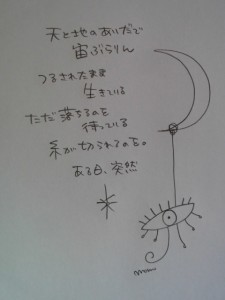 天と地のあいだで
宙ぶらりん
つるされたまま
生きている
ただ落ちるのを
待っている
糸が切られるのを。
ある日、突然